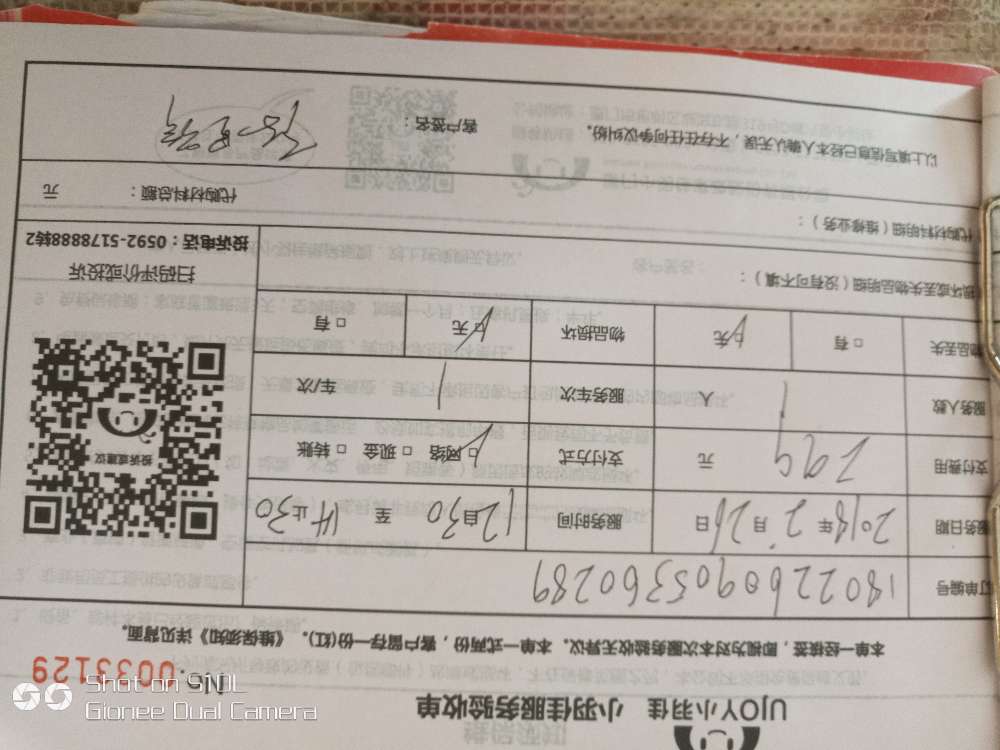 UJOY小羽佳 小羽佳服务验收单
No.0033129
本单一经核签，即视为对本次服务验收无异议。本单一式两份，客户留存一份(红)。《维保须知》详见背面。
订单编号 1802260905360289
服务日期 2018年2月26日 服务时间 12自30 至 14止30
支付费用 299 元 支付方式 □网络 □现金 □转账
服务人数 1 人 服务车次 1 车/次
物品丢失 □有 □无 物品损坏 □无 □有
损坏或丢失物品明细（没有可不填）：
投诉或建议
扫码评价或投诉
投诉电话：0592-5178888转2
代购材料明细（维修业务）：
代购材料总额： 元
以上填写信息已经本人确认无误，不存在任何争议纠纷。 客户签名：
Shot on S10L
Gionee Dual Camera